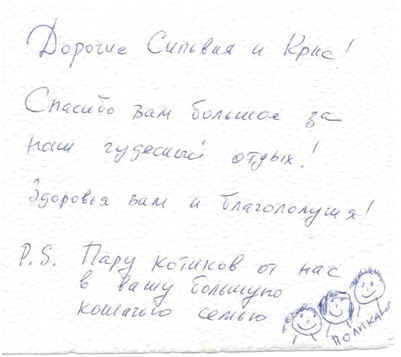 Дорогие Сильвия и Крис!
Спасибо вам большое за
наш чудесный отдых!
Здоровья вам и благополучия!
P.S. Пару котиков от нас
в вашу большую
кошачью семью